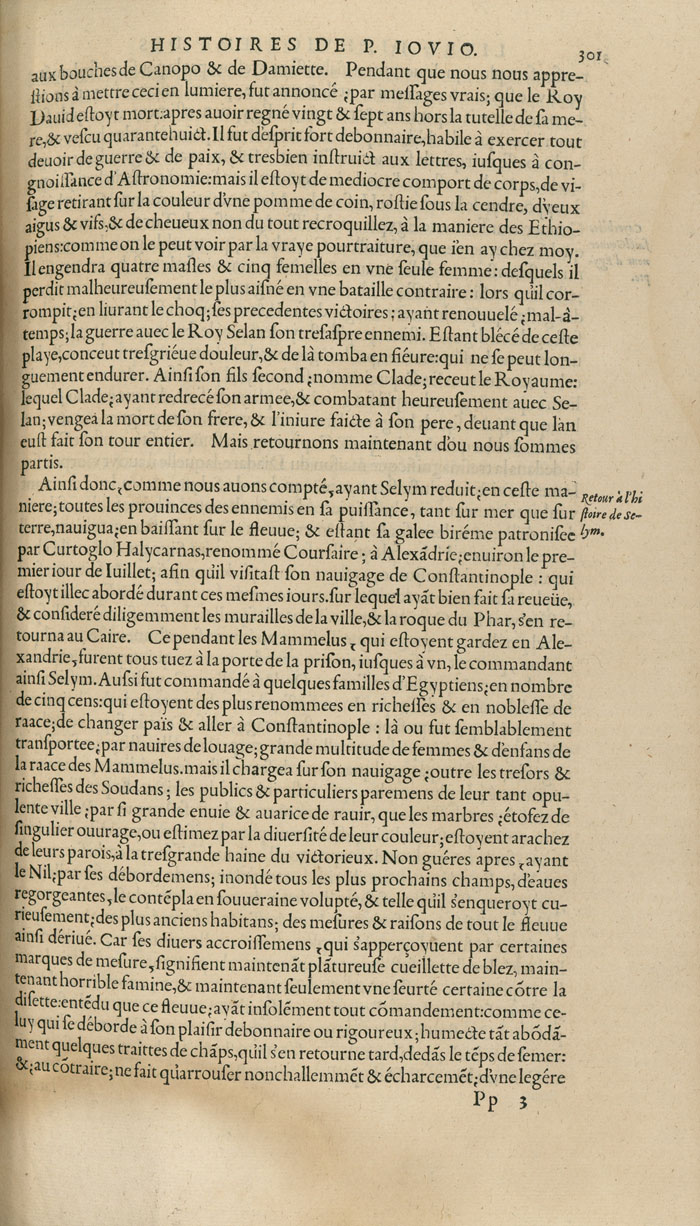 HISTOIRES DE P. IOVIO.
301
aux bouches de Canopo & de Damiette. Pendant que nous nous appre-
ſtions à mettre ceci en lumiere, fut annoncé ;par meſſages vrais; que le Roy
Dauid eſtoyt mort:apres auoir regné vingt & ſept ans hors la tutelle de ſa me-
re,& veſcu quarantehuict. Il fut d'eſprit fort debonnaire, habile à exercer tout
deuoir de guerre & de paix, & tresbien inſtruict aux lettres, iuſques à con-
gnoiſſance d'Aſtronomie:mais il eſtoyt de mediocre comport de corps,de vi-
ſage retirant ſur la couleur d'vne pomme de coin, roſtie ſous la cendre, d'yeux
aigus & vifs,& de cheueux non du tout recroquillez, à la maniere des Ethio-
piens:comme on le peut voir par la vraye pourtraiture, que i'en ay chez moy.
Il engendra quatre maſles & cinq femelles en vne ſeule femme: deſquels il
perdit malheureuſement le plus aiſné en vne bataille contraire: lors qu'il cor-
rompit;en liurant le choq;ſes precedentes victoires: ayant renouuelé ;mal-à-
temps;la guerre auec le Roy Selan ſon treſaſpre ennemi. Eſtant blécé de ceſte
playe,conceut treſgriéue douleur,& de là tomba en fiéure:qui ne ſe peut lon-
guement endurer. Ainſi ſon fils ſecond ;nomme Clade; receut le Royaume:
lequel Clade;ayant redrecé ſon armee,& combatant heureuſement auec Se-
lan;vengea la mort de ſon frere, & l'iniure faicte à ſon pere, deuant que l'an
euſt fait ſon tour entier. Mais retournons maintenant d'ou nous ſommes
partis.
Ainſi donc, comme nous auons compté, ayant Selym reduit;en ceſte ma-
niere;toutes les prouinces des ennemis en ſa puiſſance, tant ſur mer que ſur
terre,nauigua;en baiſſant ſur le fleuue; & eſtant ſa galee biréme patroniſee
par Curtoglo Halycarnas,renommé Courſaire; à Alexãdrie;enuiron le pre-
mier iour de Iuillet; afin qu'il viſitaſt ſon nauigage de Conſtantinople: qui
eſtoyt illec abordé durant ces meſmes iours.ſur lequel ayãt bien fait ſa reueüe,
& conſideré diligemment les murailles de la ville,& la roque du Phar, s'en re-
tourna au Caire. Ce pendant les Mammelus, qui eſtoyent gardez en Ale-
xandrie, furent tous tuez à la porte de la priſon, iuſques à vn, le commandant
ainſi Selym. Auſsi fut commandé à quelques familles d'Egyptiens;en nombre
de cinq cens:qui eſtoyent des plus renommees en richeſſes & en nobleſſe de
raace;de changer païs & aller à Conſtantinople: là ou fut ſemblablement
tranſportee;par nauires de louage; grande multitude de femmes & d'enfans de
la raace des Mammelus.mais il chargea ſur ſon nauigage ;outre les treſors &
richeſſes des Soudans; les publics & particuliers paremens de leur tant opu-
lente ville ;par ſi grande enuie & auarice de rauir, que les marbres ;étofez de
ſingulier ouurage,ou eſtimez par la diuerſité de leur couleur;eſtoyent arachez
de leurs parois,à la treſgrande haine du victorieux. Non guéres apres, ayant
le Nil;par ſes débordemens; inondé tous les plus prochains champs, d'eaues
regorgeantes, le contépla en ſouueraine volupté, & telle qu'il s'enqueroyt cu-
rieuſement;des plus anciens habitans; des meſures & raiſons de tout le fleuue
ainſi dériué. Car ſes diuers accroiſſemens, qui s'apperçoyuent par certaines
marques de meſure, ſignifient maintenãt plãtureuſe cueillette de blez, main-
tenant horrible famine,& maintenant ſeulement vne ſeurté certaine cõtre la
diſette:entédu que ce fleuue;ayãt inſolément tout cõmandement:comme ce-
luy qui ſe déborde à ſon plaiſir debonnaire ou rigoureux; humecte tãt abõdã-
ment quelques traittes de chãps,qu'il s'en retourne tard,dedãs le téps de ſemer:
&;au cõtraire;ne fait qu'arrouſer nonchallemmét & écharcemét;d'vne legére
Retour à l'hi
ſtoire de Se-
lym.
Pp 3